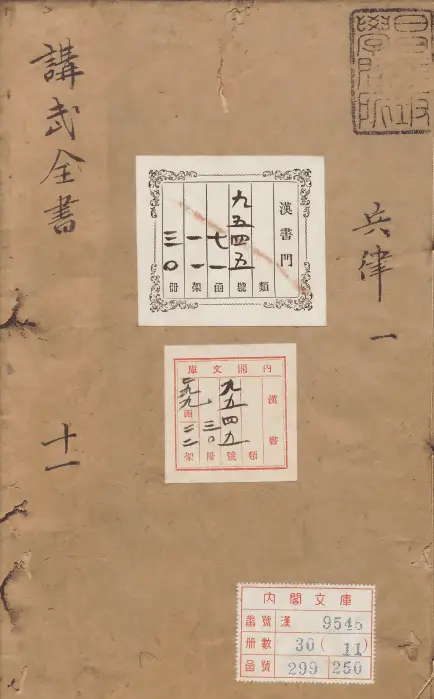 昌平坂
學問所
兵律 一
講武全書
十一
漢書門
類
九五四五號
七一函
一一架
三〇冊
內閣文庫
漢書
類
九五四五號
三〇冊
二九九函二二架
内閣文庫
番號 漢 9545
册數 30(11)
函號 299 250